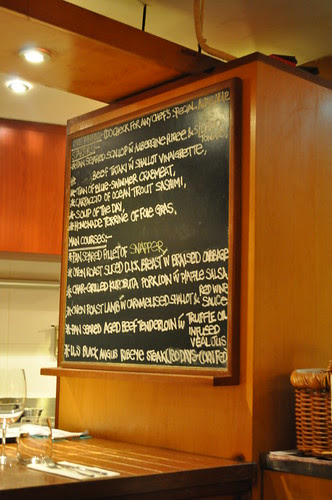 TO CHECK FOR ANY CHEF'S SPECIAL AVAILABLE
* PAN SEARED SCALLOP W AUBERGINE PUREE &
BEEF TATAKI W SHALLOT VINAIGRETTE,
* TIAN OF BLUE-SWIMMER CRABMEAT,
* CARPACCIO OF OCEAN TROUT SASHIMI,
* SOUP OF THE DAY,
* HOMEMADE TERRINE OF FOIE GRAS.
MAIN COURSES:-
* PAN SEARED FILLET OF SNAPPER
* OVEN ROAST SLICED DUCK BREAST W BRAISED CABBAGE
* CHAR-GRILLED KUROBUTA PORK LOIN W APPLE SALSA
* OVEN ROAST LAMB W CARAMELISED SHALLOT & RED WINE
SAUCE
* PAN SEARED AGED BEEF TENDERLOIN W TRUFFLE OIL
INFUSED
VEAL JUS
* U.S BLACK ANGUS RIBEYE STEAK CORN FED